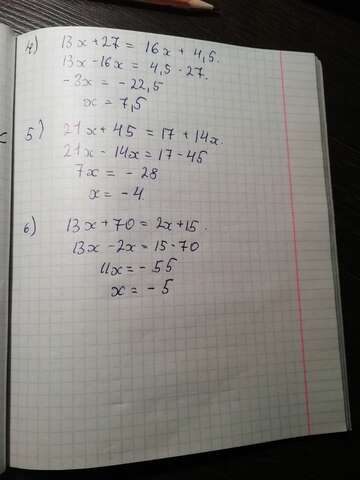 4) 13x + 27 = 16x + 4,5.
13x - 16x = 4,5 - 27.
-3x = - 22,5
x = 7,5
5) 21x + 45 = 17 + 14x.
21x - 14x = 17 - 45
7x = - 28
x = - 4
6) 13x + 70 = 2x + 15.
13x - 2x = 15 - 70
11x = - 55
x = - 5